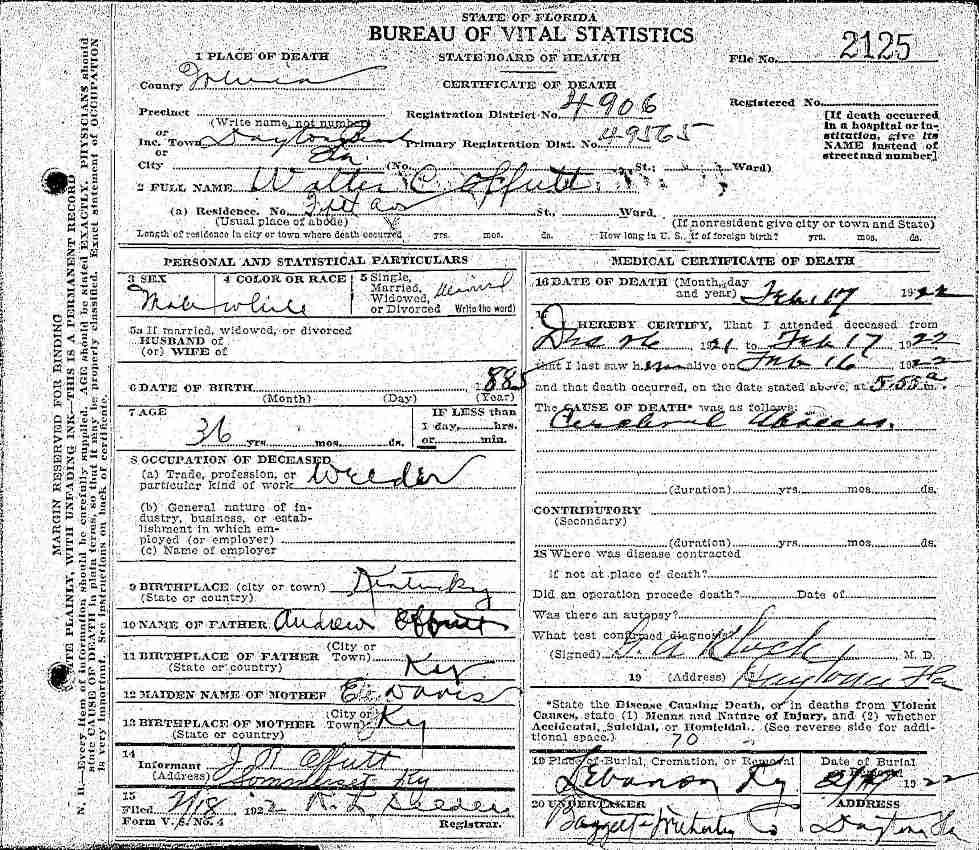 STATE OF FLORIDA
BUREAU OF VITAL STATISTICS
STATE BOARD OF HEALTH
CERTIFICATE OF DEATH
File No. 2125
1 PLACE OF DEATH
County Volusia
Precinct
(Write name, not number)
or
Inc. Town Daytona
or
City Fla. (No. St.; Ward)
Registration District No. 4906
Primary Registration Dist. No. 49565
Registered No.
[If death occurred in a hospital or institution, give its NAME instead of street and number]
2 FULL NAME Walter C. Offutt
(a) Residence. No. St., Ward.
(Usual place of abode)
(If nonresident give city or town and State)
Length of residence in city or town where death occurred yrs. mos. ds. How long in U. S., if of foreign birth? yrs. mos. ds.
PERSONAL AND STATISTICAL PARTICULARS
3 SEX
Male
4 COLOR OR RACE
White
5 Single, Married, Widowed, or Divorced Write the word)
5a If married, widowed, or divorced
HUSBAND of
(or) WIFE of
6 DATE OF BIRTH 1885
(Month) (Day) (Year)
7 AGE
36 yrs. mos. ds.
IF LESS than
1 day, hrs.
or min.
8 OCCUPATION OF DECEASED
(a) Trade, profession, or
particular kind of work
(b) General nature of in-
dustry, business, or estab-
lishment in which em-
ployed (or employer)
(c) Name of employer
9 BIRTHPLACE (city or town) Kentucky
(State or country)
10 NAME OF FATHER Andrew Offutt
11 BIRTHPLACE OF FATHER (City or Town)
(State or country) Ky
12 MAIDEN NAME OF MOTHER Davis
13 BIRTHPLACE OF MOTHER (City or Town) Ky
(State or country)
14
Informant Offutt
(Address) Ky
15
Filed 2/18 1922
Registrar.
Form V. S. No. 4
MEDICAL CERTIFICATE OF DEATH
16 DATE OF DEATH (Month, day and year) Feb. 17 1922
I HEREBY CERTIFY, That I attended deceased from
Dec 26 1921 to Feb 17 1922
that I last saw him alive on Feb 16 1922
and that death occurred, on the date stated above, at 5:55 a m.
The CAUSE OF DEATH* was as follows:
Cerebral Abscess.
(duration) yrs. mos. ds.
CONTRIBUTORY
(Secondary)
(duration) yrs. mos. ds.
18 Where was disease contracted
if not at place of death?
Did an operation precede death? Date of
Was there an autopsy?
What test confirmed diagnosis?
(Signed) M. D.
19 (Address) Daytona Fla
*State the Disease Causing Death, or in deaths from Violent
Causes, state (1) Means and Nature of Injury, and (2) whether
Accidental, Suicidal, or Homicidal. (See reverse side for addi-
tional space.) 70
19 Place of Burial, Cremation, or Removal
Lebanon Ky
Date of Burial
1922
20 UNDERTAKER
ADDRESS
Daytona Fla
MARGIN RESERVED FOR BINDING
PLAINLY, WITH UNFADING INK—THIS IS A PERMANENT RECORD
N. B.—Every item of information should be carefully supplied. AGE should be stated EXACTLY. PHYSICIANS should
state CAUSE OF DEATH in plain terms, so that it may be properly classified. Exact statement of OCCUPATION
is very important. See instructions on back of certificate.